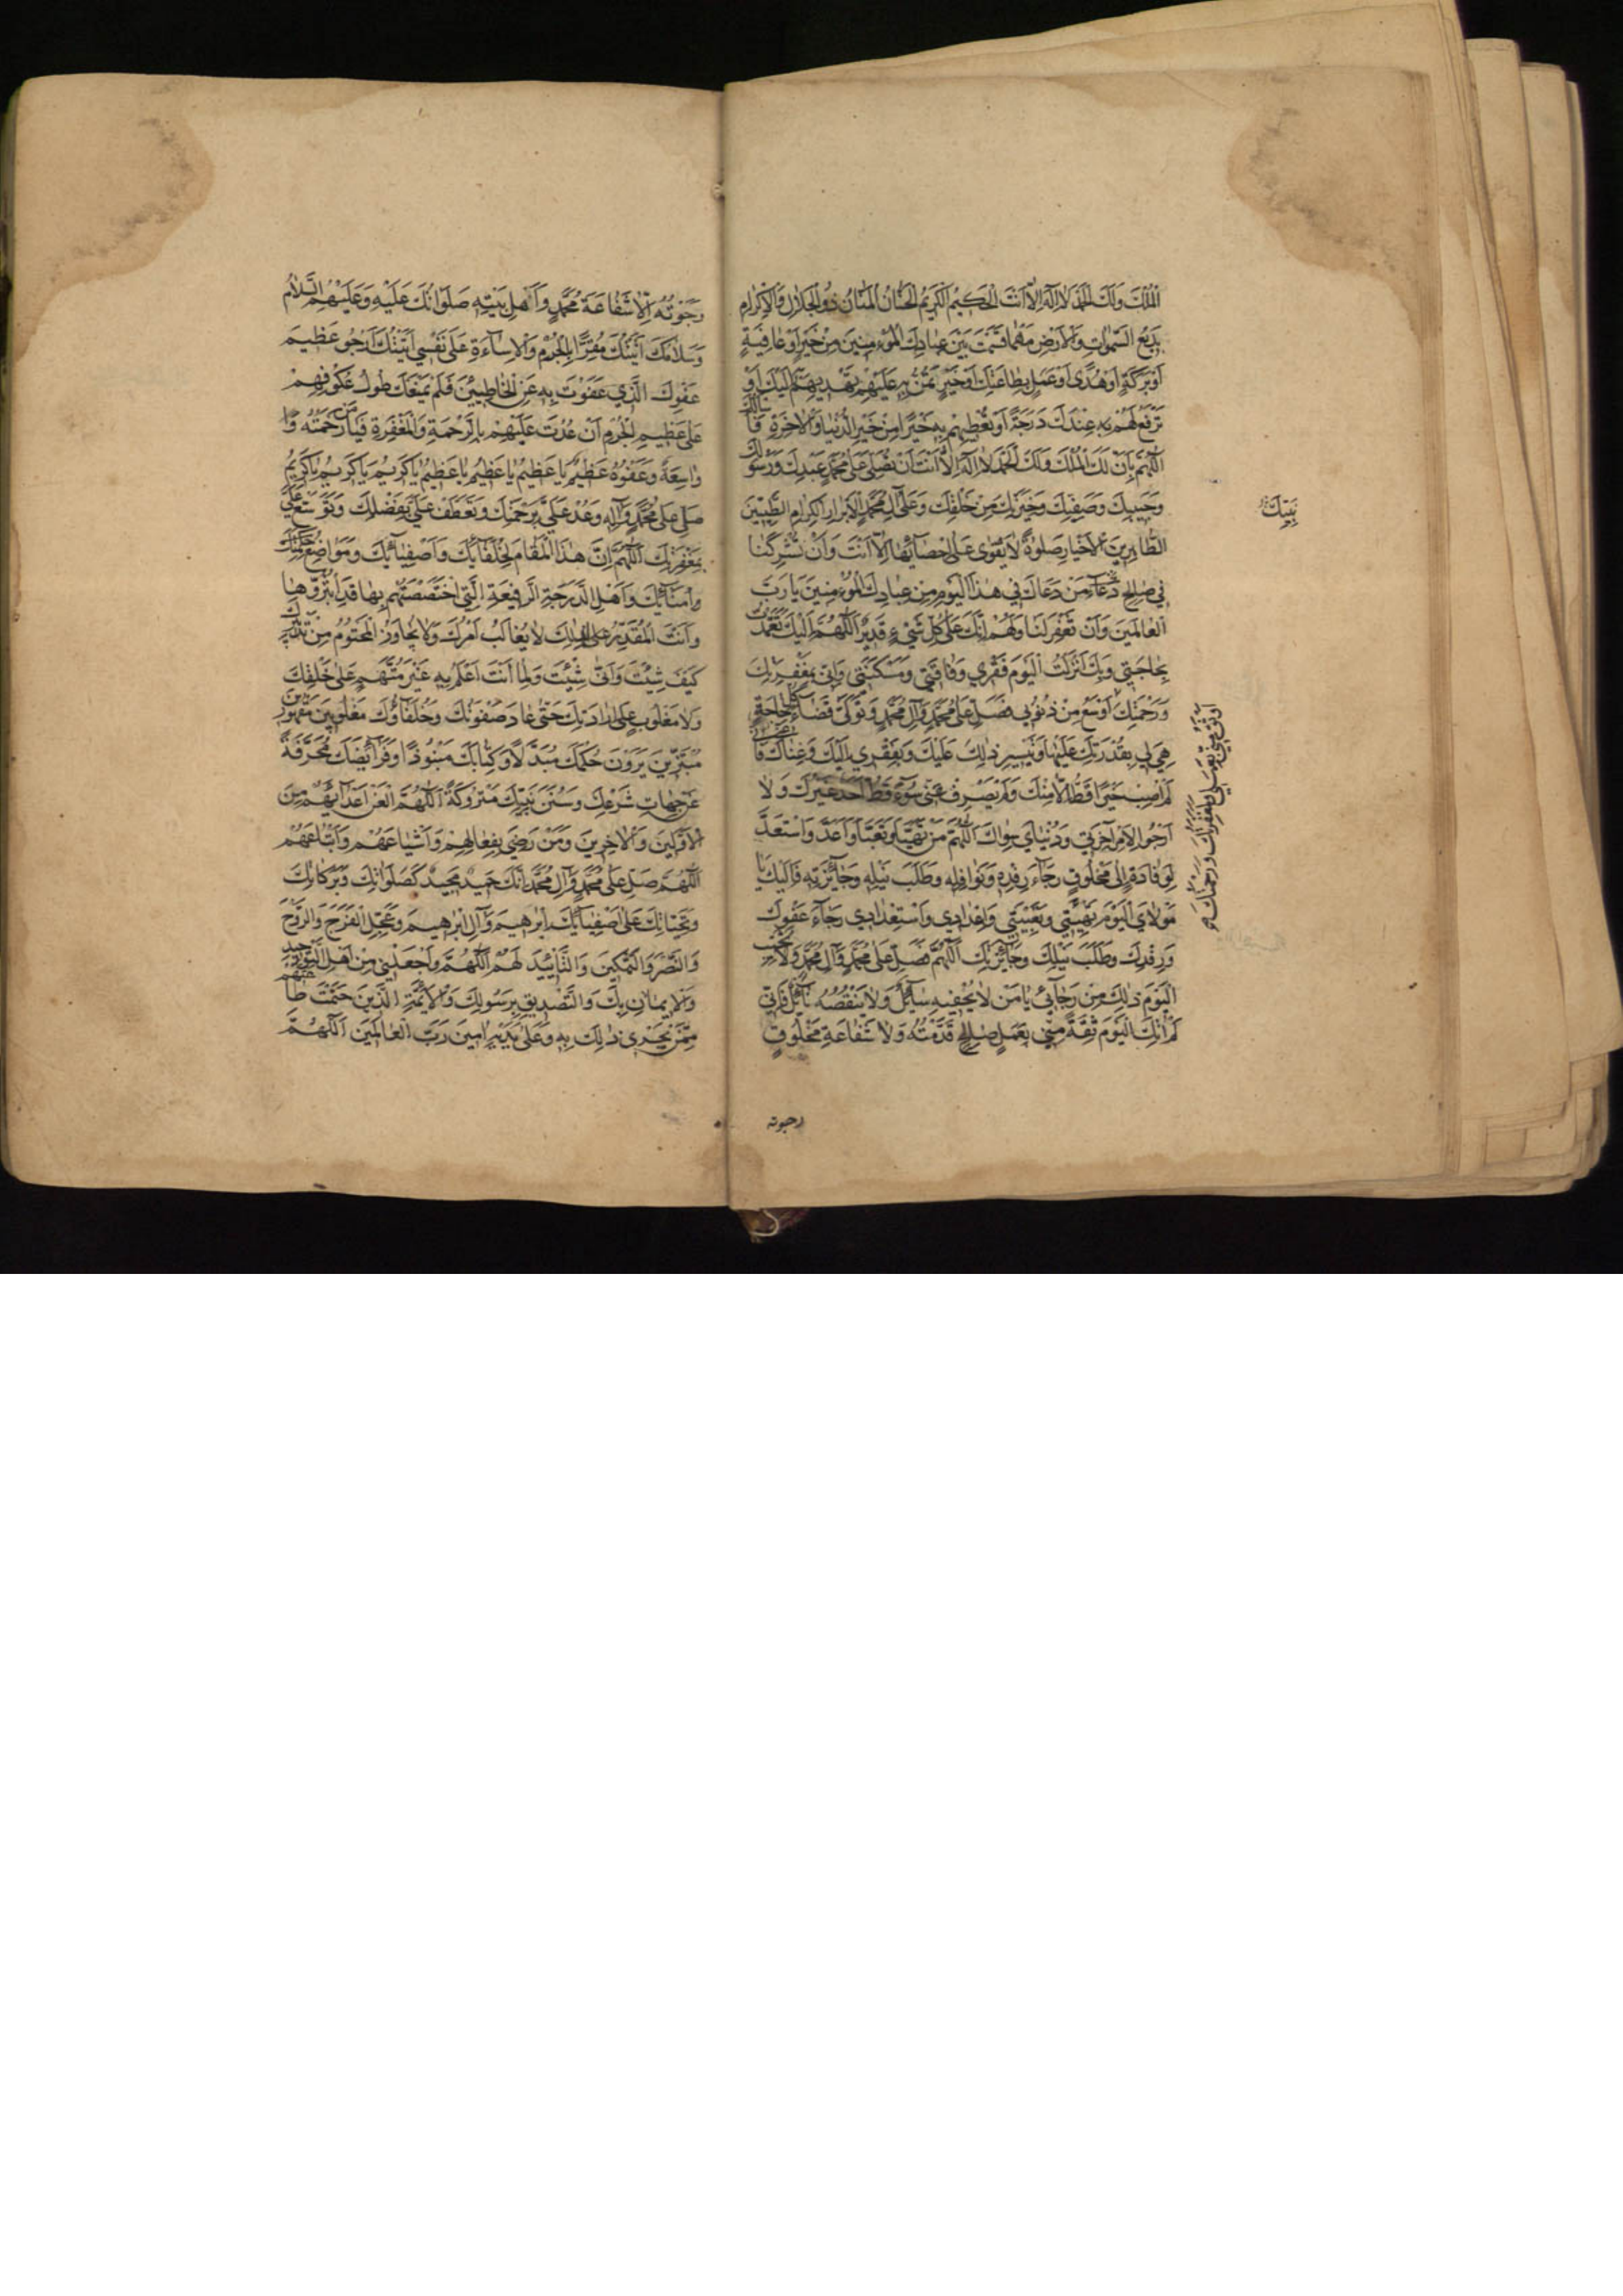 الْمُلْكَ وَلَكَ الْحَمْدَ لَا اِلٰهَ اِلَّا اَنْتَ الْحَكِيمُ الْكَرِيمُ الْحَنَّانُ الْمَنَّانُ ذُو الْجَلَالِ وَالْاِكْرَامِ
بَدِيعُ السَّمٰوَاتِ وَالْاَرْضِ مَهْمَا قَسَمْتَ بَيْنَ عِبَادِكَ الْمُؤْمِنِينَ مِنْ خَيْرٍ اَوْ عَافِيَةٍ
اَوْ بَرَكَةٍ اَوْ هُدًى اَوْ عَمَلٍ بِطَاعَتِكَ اَوْ خَيْرٍ تَمُنُّ بِهِ عَلَيْهِمْ تَهْدِيهِمْ بِهِ اِلَيْكَ اَوْ
تَرْفَعُ لَهُمْ بِهِ عِنْدَكَ دَرَجَةً اَوْ تُعْطِيهِمْ بِهِ خَيْرًا مِنْ خَيْرِ الدُّنْيَا وَالْاٰخِرَةِ فَاَسْأَلُكَ
اللّٰهُمَّ بِاَنَّ لَكَ الْمُلْكَ وَلَكَ الْحَمْدَ لَا اِلٰهَ اِلَّا اَنْتَ اَنْ تُصَلِّيَ عَلٰى مُحَمَّدٍ عَبْدِكَ وَرَسُولِكَ
وَحَبِيبِكَ وَصَفِيِّكَ وَخِيَرَتِكَ مِنْ خَلْقِكَ وَعَلٰى آلِ مُحَمَّدٍ الْاَبْرَارِ الْكِرَامِ الطَّيِّبِينَ
الطَّاهِرِينَ الْاَخْيَارِ صَلٰوةً لَا يَقْوٰى عَلٰى اِحْصَائِهَا اِلَّا اَنْتَ وَاَنْ تُشْرِكَنَا
فِي صَالِحِ دُعَاءِ مَنْ دَعَاكَ فِي هٰذَا الْيَوْمِ مِنْ عِبَادِكَ الْمُؤْمِنِينَ يَا رَبَّ
الْعَالَمِينَ وَاَنْ تَغْفِرَ لَنَا وَلَهُمْ اِنَّكَ عَلٰى كُلِّ شَيْءٍ قَدِيرٌ اَللّٰهُمَّ اِلَيْكَ تَعَمَّدْتُ
بِحَاجَتِي وَبِكَ اَنْزَلْتُ الْيَوْمَ فَقْرِي وَفَاقَتِي وَمَسْكَنَتِي وَاِنِّي بِمَغْفِرَتِكَ
وَرَحْمَتِكَ اَوْسَعُ مِنْ ذُنُوبِي فَصَلِّ عَلٰى مُحَمَّدٍ وَآلِ مُحَمَّدٍ وَتَوَلَّ قَضَاءَ كُلِّ حَاجَةٍ
هِيَ لِي بِقُدْرَتِكَ عَلَيْهَا وَتَيْسِيرِ ذٰلِكَ عَلَيْكَ وَبِفَقْرِي اِلَيْكَ وَغِنَاكَ عَنِّي فَاِنِّي
لَمْ اُصِبْ خَيْرًا قَطُّ اِلَّا مِنْكَ وَلَمْ يَصْرِفْ عَنِّي سُوءً قَطُّ اَحَدٌ غَيْرُكَ وَلَا
اَرْجُو لِاَمْرِ آخِرَتِي وَدُنْيَايَ سِوَاكَ اَللّٰهُمَّ مَنْ تَهَيَّأَ وَتَعَبَّأَ وَاَعَدَّ وَاسْتَعَدَّ
لِوِفَادَةٍ اِلٰى مَخْلُوقٍ رَجَاءَ رِفْدِهِ وَنَوَافِلِهِ وَطَلَبَ نَيْلِهِ وَجَائِزَتِهِ فَاِلَيْكَ يَا
مَوْلَايَ الْيَوْمَ تَهْيِئَتِي وَتَعْبِئَتِي وَاِعْدَادِي وَاسْتِعْدَادِي رَجَاءَ عَفْوِكَ
وَرِفْدِكَ وَطَلَبَ نَيْلِكَ وَجَائِزَتِكَ اَللّٰهُمَّ فَصَلِّ عَلٰى مُحَمَّدٍ وَآلِ مُحَمَّدٍ وَلَا تُخَيِّبِ
الْيَوْمَ ذٰلِكَ مِنْ رَجَائِي يَا مَنْ لَا يُحْفِيهِ سَائِلٌ وَلَا يَنْقُصُهُ نَائِلٌ فَاِنِّي
لَمْ اٰتِكَ الْيَوْمَ ثِقَةً مِنِّي بِعَمَلٍ صَالِحٍ قَدَّمْتُهُ وَلَا شَفَاعَةِ مَخْلُوقٍ
رجوته
رَجَوْتُهُ اِلَّا شَفَاعَةَ مُحَمَّدٍ وَاَهْلِ بَيْتِهِ صَلَوَاتُكَ عَلَيْهِ وَعَلَيْهِمُ السَّلَامُ
وَسَلَامُكَ اَتَيْتُكَ مُقِرًّا بِالْجُرْمِ وَالْاِسَاءَةِ عَلٰى نَفْسِي اَتَيْتُكَ اَرْجُو عَظِيمَ
عَفْوِكَ الَّذِي عَفَوْتَ بِهِ عَنِ الْخَاطِئِينَ فَلَمْ يَمْنَعْكَ طُولُ عُكُوفِهِمْ
عَلٰى عَظِيمِ الْجُرْمِ اَنْ عُدْتَ عَلَيْهِمْ بِالرَّحْمَةِ وَالْمَغْفِرَةِ فَيَا مَنْ رَحْمَتُهُ
وَاسِعَةٌ وَعَفْوُهُ عَظِيمٌ يَا عَظِيمُ يَا عَظِيمُ يَا عَظِيمُ يَا كَرِيمُ يَا كَرِيمُ يَا كَرِيمُ
صَلِّ عَلٰى مُحَمَّدٍ وَآلِهِ وَعُدْ عَلَيَّ بِرَحْمَتِكَ وَتَعَطَّفْ عَلَيَّ بِفَضْلِكَ وَتَوَسَّعْ عَلَيَّ
بِمَغْفِرَتِكَ اَللّٰهُمَّ اِنَّ هٰذَا الْمَقَامَ لِخُلَفَائِكَ وَاَصْفِيَائِكَ وَمَوَاضِعَ
وَاُمَنَائِكَ وَاَهْلِ الدَّرَجَةِ الرَّفِيعَةِ الَّتِي اخْتَصَصْتَهُمْ بِهَا قَدِ ابْتَزُّوهَا
وَاَنْتَ الْمُقَدِّرُ لِذٰلِكَ لَا يُغَالَبُ اَمْرُكَ وَلَا يُجَاوَزُ الْمَحْتُومُ مِنْ تَدْبِيرِكَ
كَيْفَ شِئْتَ وَاَنّٰى شِئْتَ وَلِمَا اَنْتَ اَعْلَمُ بِهِ غَيْرَ مُتَّهَمٍ عَلٰى خَلْقِكَ
وَلَا مَغْلُوبٍ عَلٰى اِرَادَتِكَ حَتّٰى عَادَ صَفْوَتُكَ وَخُلَفَاؤُكَ مَغْلُوبِينَ مَقْهُورِينَ
مُبْتَزِّينَ يَرَوْنَ حُكْمَكَ مُبَدَّلًا وَكِتَابَكَ مَنْبُوذًا وَفَرَائِضَكَ مُحَرَّفَةً
عَنْ جِهَاتِ شَرْعِكَ وَسُنَنَ نَبِيِّكَ مَتْرُوكَةً اَللّٰهُمَّ الْعَنْ اَعْدَائَهُمْ مِنَ
الْاَوَّلِينَ وَالْاٰخِرِينَ وَمَنْ رَضِيَ بِفِعَالِهِمْ وَاَشْيَاعَهُمْ وَاَتْبَاعَهُمْ
اَللّٰهُمَّ صَلِّ عَلٰى مُحَمَّدٍ وَآلِ مُحَمَّدٍ اِنَّكَ حَمِيدٌ مَجِيدٌ كَصَلَوَاتِكَ وَبَرَكَاتِكَ
وَتَحِيَّاتِكَ عَلٰى اَصْفِيَائِكَ اِبْرٰهِيمَ وَآلِ اِبْرٰهِيمَ وَعَجِّلِ الْفَرَجَ وَالرَّوْحَ
وَالنَّصْرَ وَالتَّمْكِينَ وَالتَّأْيِيدَ لَهُمْ اَللّٰهُمَّ وَاجْعَلْنِي مِنْ اَهْلِ التَّوْحِيدِ
وَالْاِيمَانِ بِكَ وَالتَّصْدِيقِ بِرَسُولِكَ وَالْاَئِمَّةِ الَّذِينَ حَتَمْتَ طَاعَتَهُمْ
مِمَّنْ يَجْرِي ذٰلِكَ بِهِ وَعَلٰى يَدَيْهِ اٰمِينَ رَبَّ الْعَالَمِينَ اَللّٰهُمَّ